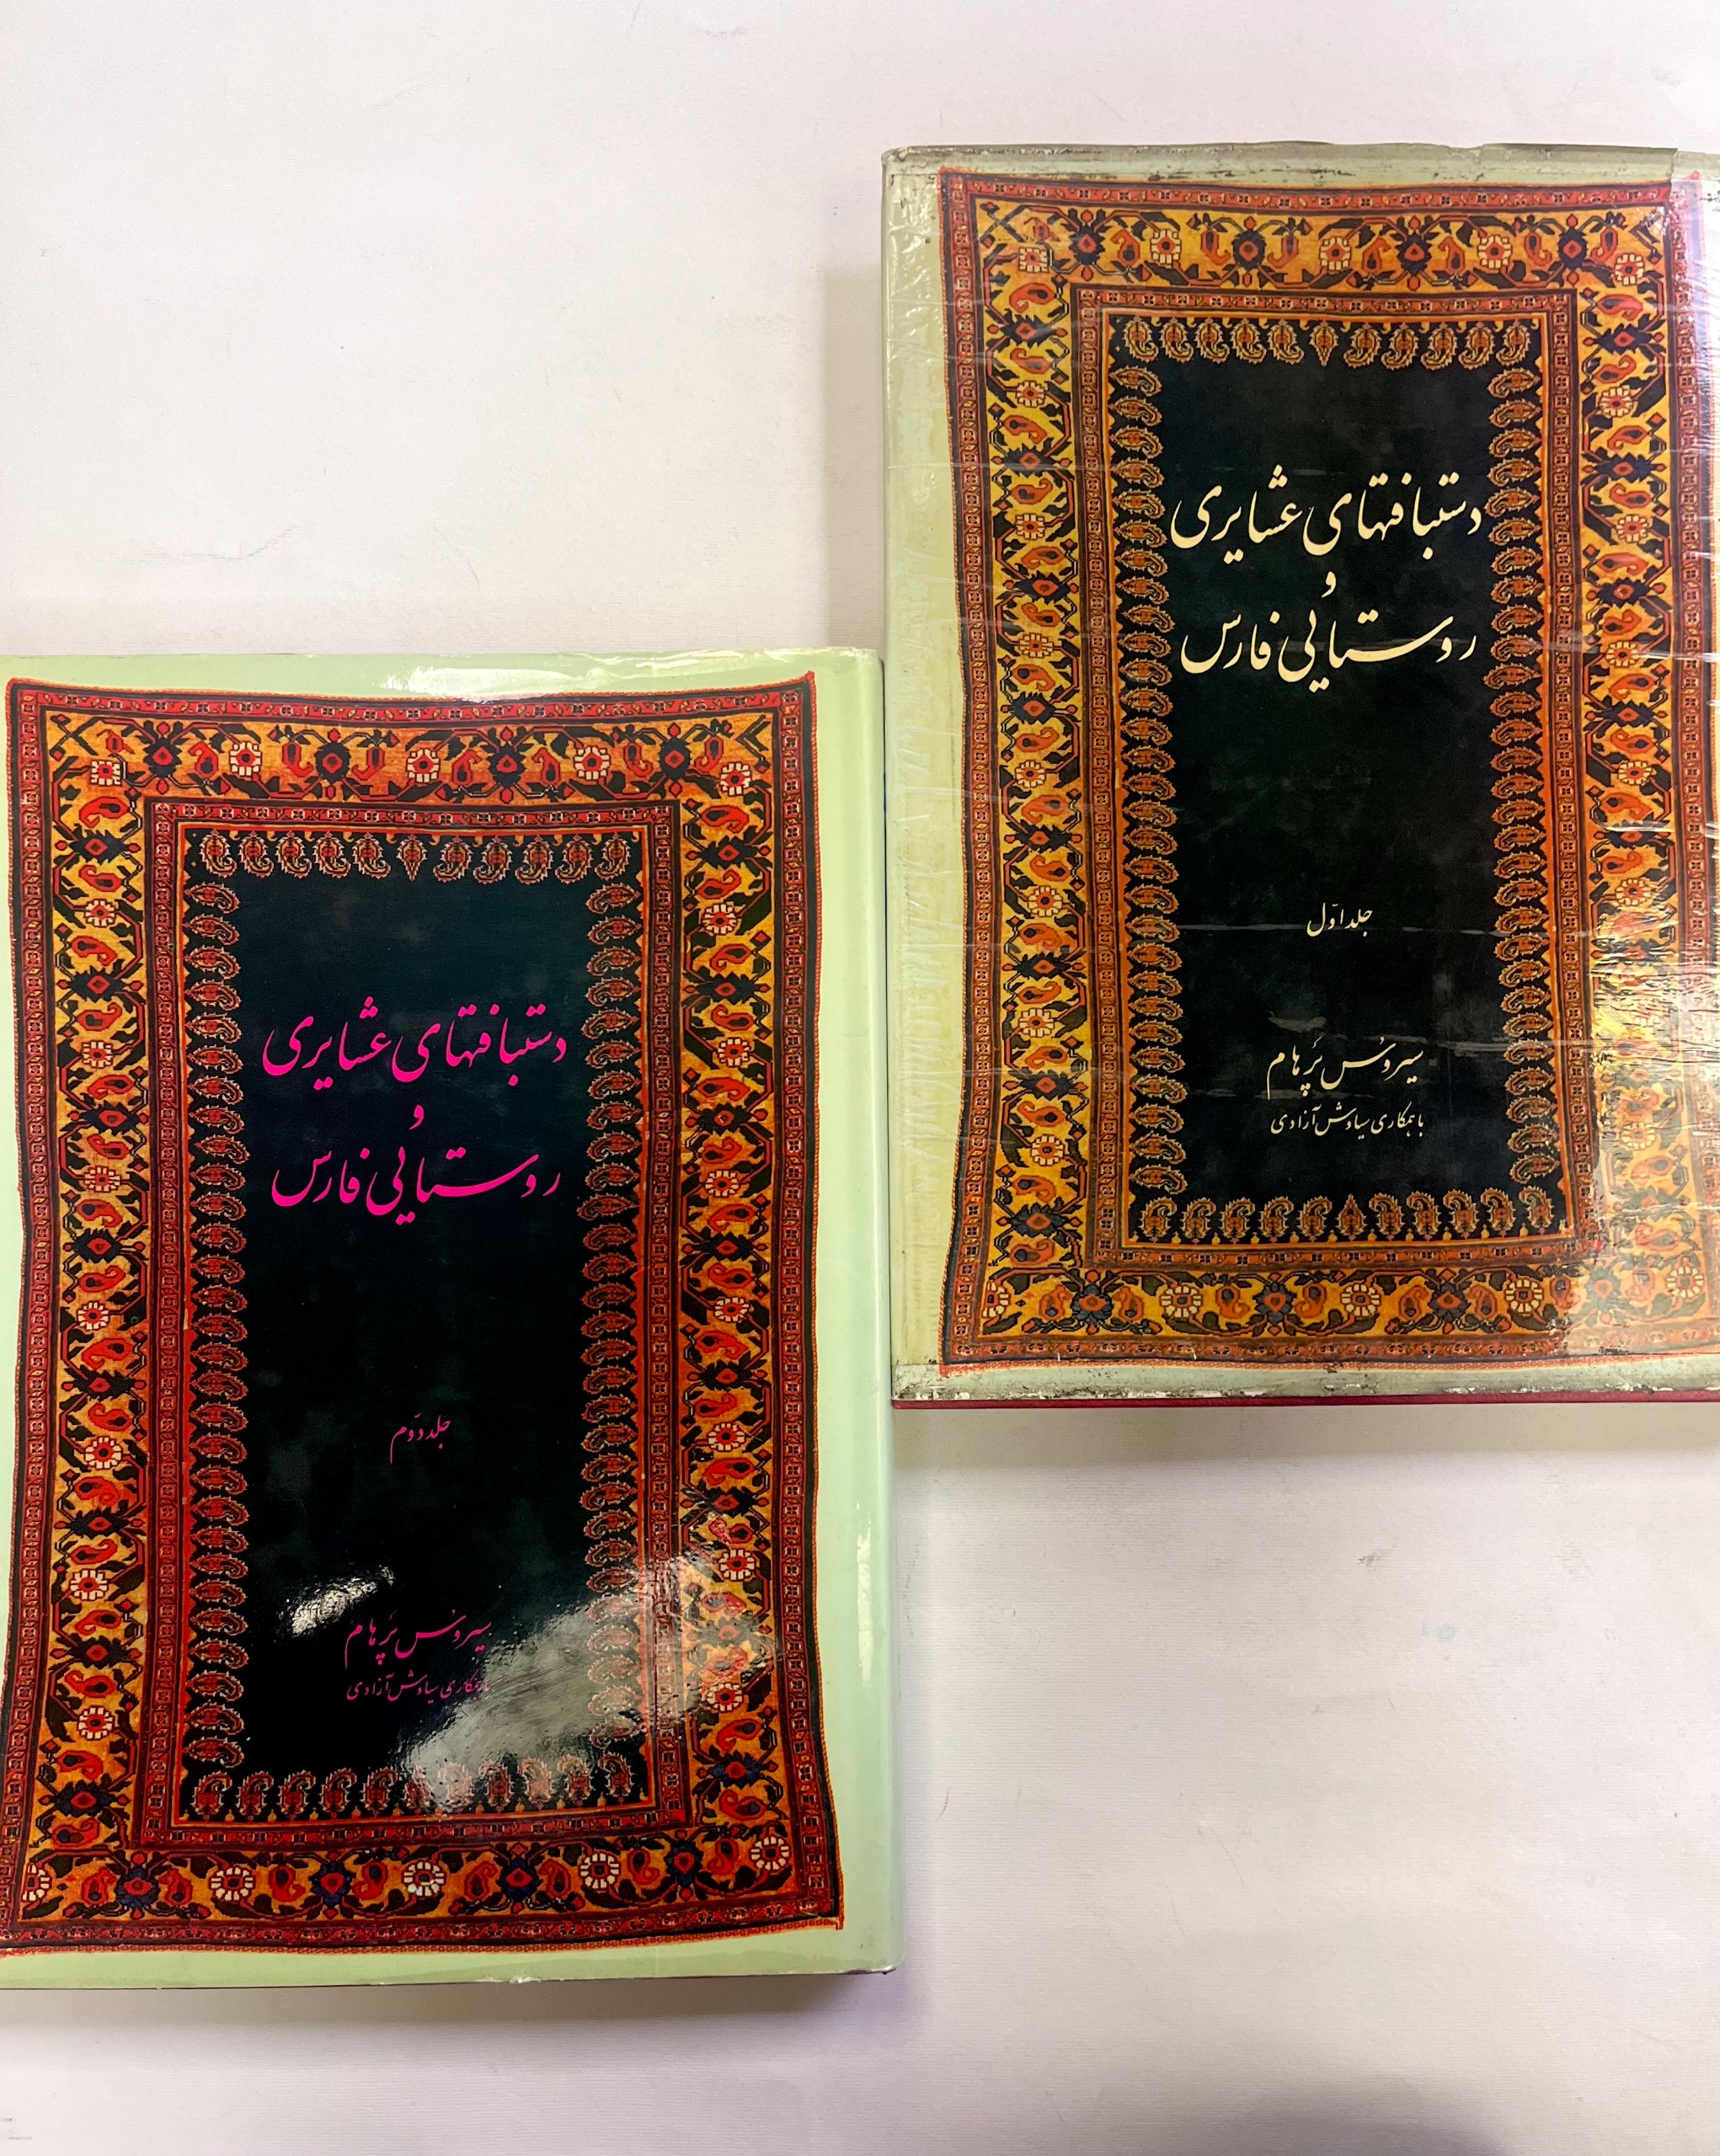 دستبافتهای عشایری
و
روستایی فارس
جلد اوّل
سیروُس پَرهام
با همکاری سیاوش آزادی
دستبافتهای عشایری
و
روستایی فارس
جلد دوّم
سیروُس پَرهام
با همکاری سیاوش آزادی